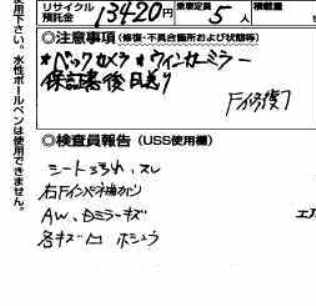 リサイクル預託金 13420円 乗車定員 5人 積載量
◎注意事項(修復・不具合箇所および状態等)
*バックカメラ *ウィンカーミラー
保証書後日送り
F修復7
◎検査員報告 (USS使用欄)
シートスレ
右Fインパネ補カン
AW、Dミラーキズ
各キズ凹
使用下さい。水性ボールペンは使用できません。